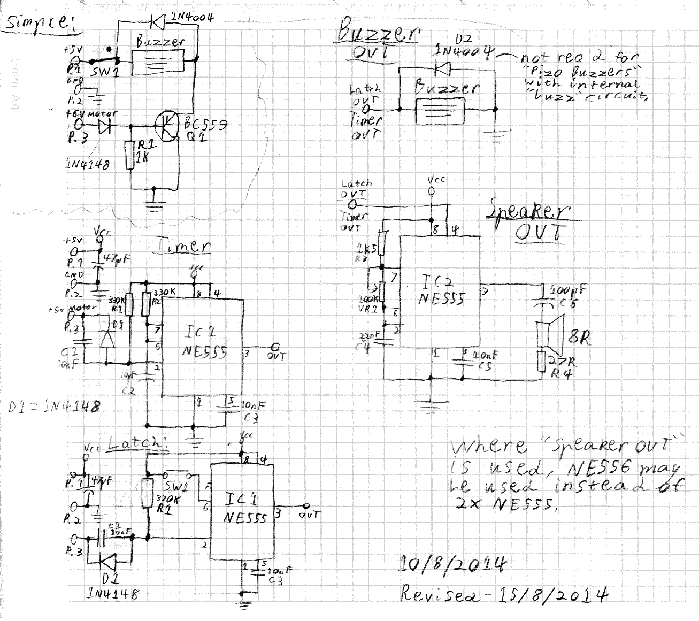 Simple:
1N4004
+5V
P.1
SW1
Buzzer
GND
P.2
+5V MOTOR
P.3
1N4148
R1
1K
BC559
Q1
Buzzer
OUT
D2
1N4004
not req'd for
"Piezo Buzzers"
with internal
"buzz" circuit.
Latch
OUT
Timer
OUT
Buzzer
Timer
Vcc
+5V
P.1
47µF
GND
P.2
+5V Motor
P.3
D1
C1
10nF
330K
R1
330K
R2
Vcc
8
4
7
6
2
IC1
NE555
3
OUT
1
5
C2
10nF
C3
D1=1N4148
Latch
OUT
Timer
OUT
Vcc
Speaker
OUT
8
4
1K5
R3
7
100K
VR1
6
2
22nF
C4
IC2
NE555
3
1
5
10nF
C5
100µF
C6
8R
27R
R4
Latch:
Vcc
P.1
47µF
P.2
P.3
10nF
D1
1N4148
Vcc
8
4
SW1
330K
R1
6
2
IC1
NE555
3
OUT
1
5
10nF
C3
Where "speaker out"
is used, NE556 may
be used instead of
2x NE555.
10/8/2014
Revised-15/8/2014